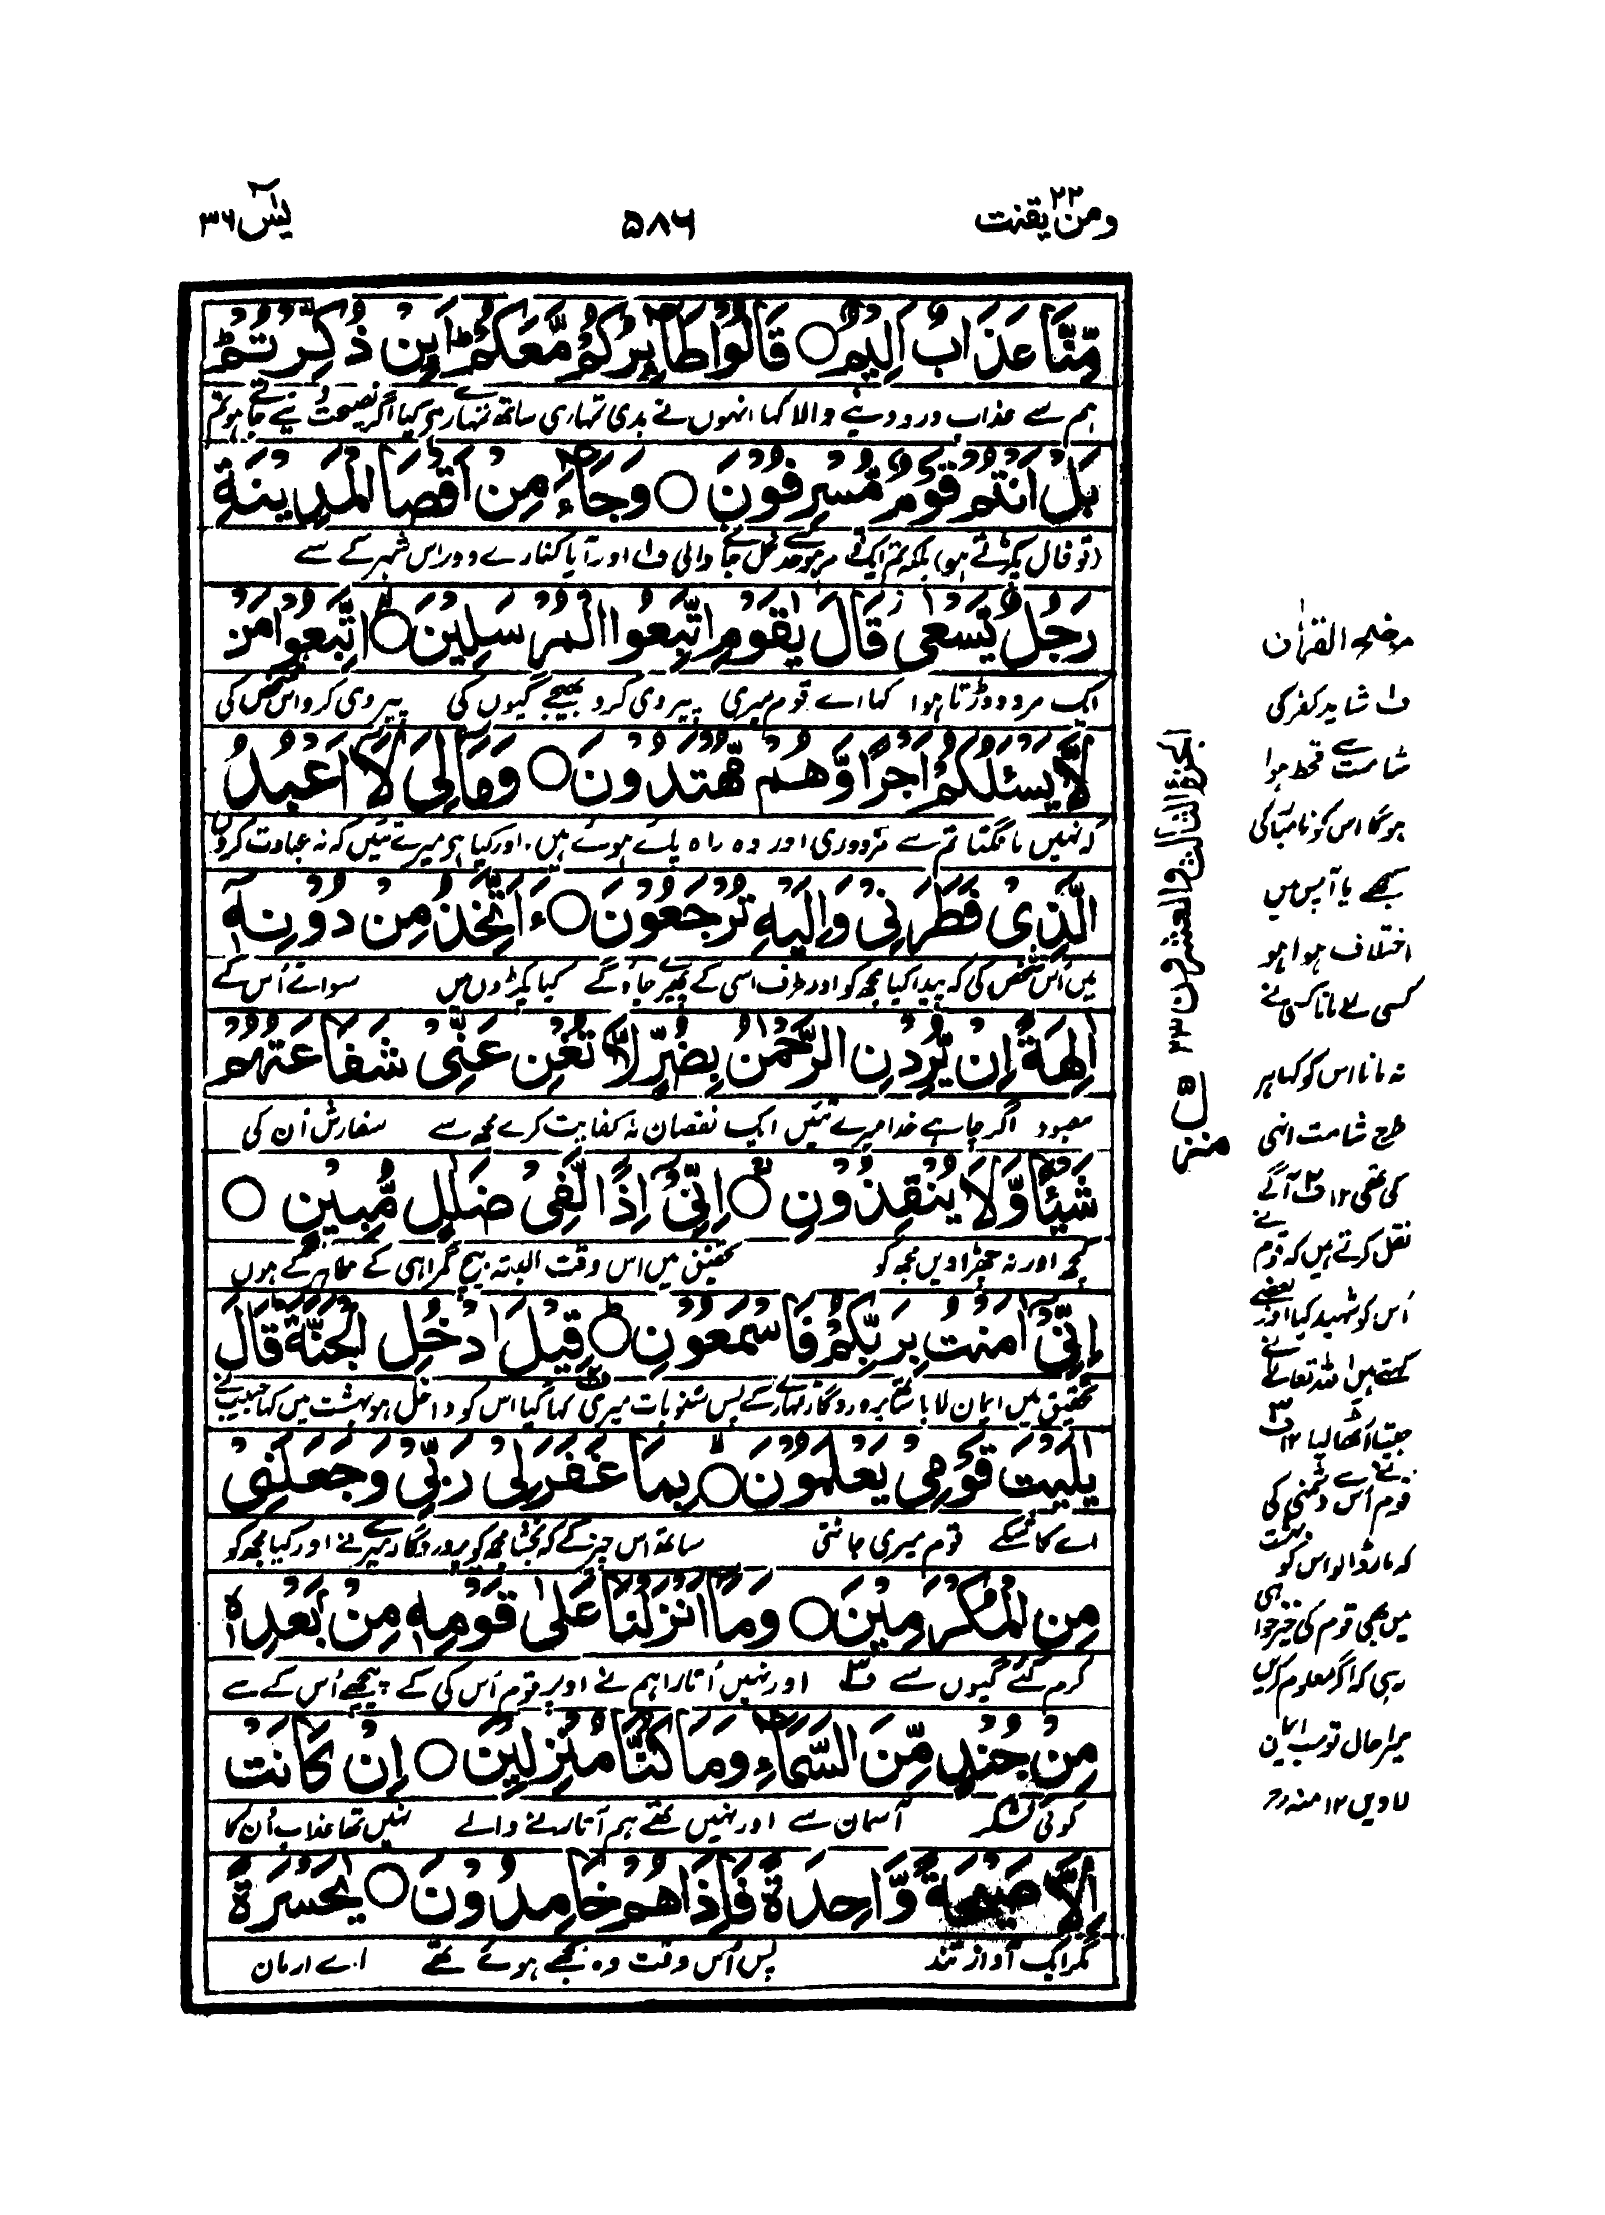 ومن یقنت ۲۲
۵۸۶
یٰسٓ ۳۶
مِّنَّا عَذَابٌ اَلِیْمٌ ○ قَالُوْا طَآئِرُكُمْ مَّعَكُمْ ؕ اَئِنْ ذُكِّرْتُمْ ؕ
ہم سے عذاب درد دینے والا کہا انہوں نے بدی تمہاری ساتھ تمہارے ہی کیا اگر نصیحت دئیے جاتے ہو تم
بَلْ اَنْتُمْ قَوْمٌ مُّسْرِفُوْنَ ○ وَجَآءَ مِنْ اَقْصَا الْمَدِیْنَةِ
(تو فال پکڑتے ہو) بلکہ تم ایک قوم ہو حد سے نکل جانے والی ف۱ اور آیا کنارے دور اس شہر کے سے
رَجُلٌ یَّسْعٰی قَالَ یٰقَوْمِ اتَّبِعُوا الْمُرْسَلِیْنَ ○ۙ اتَّبِعُوْا مَنْ
ایک مرد دوڑتا ہوا کہا اے قوم میری پیروی کرو بھیجے گیوں کی پیروی کرو اس شخص کی
لَّا یَسْئَلُكُمْ اَجْرًا وَّهُمْ مُّهْتَدُوْنَ ○ وَمَالِیَ لَآ اَعْبُدُ
کہ نہیں مانگتا تم سے مزدوری اور وہ راہ پائے ہوئے ہیں، اور کیا ہے میرے تئیں کہ نہ عبادت کروں
الَّذِیْ فَطَرَنِیْ وَاِلَیْهِ تُرْجَعُوْنَ ○ ءَاَتَّخِذُ مِنْ دُوْنِهٖۤ
میں اُس شخص کی کہ پیدا کیا مجھ کو اور طرف اسی کے پھیرے جاؤ گے کیا پکڑوں میں سوائے اُس کے
اٰلِهَةً اِنْ یُّرِدْنِ الرَّحْمٰنُ بِضُرٍّ لَّا تُغْنِ عَنِّیْ شَفَاعَتُهُمْ
معبود اگر چاہے خدا میرے تئیں ایک نقصان نہ کفایت کرے مجھ سے سفارش اُن کی
شَیْئًا وَّلَا یُنْقِذُوْنِ ○ۚ اِنِّیْۤ اِذًا لَّفِیْ ضَلٰلٍ مُّبِیْنٍ ○
کچھ اور نہ چھڑاویں مجھ کو تحقیق میں اس وقت البتہ بیچ گمراہی کے ظاہر کے ہوں
اِنِّیْۤ اٰمَنْتُ بِرَبِّكُمْ فَاسْمَعُوْنِ ○ؕ قِیْلَ ادْخُلِ الْجَنَّةَ ؕ قَالَ
تحقیق میں ایمان لایا ساتھ پروردگار تمہارے کے پس سنو بات میری ف۲ کہا گیا اس کو داخل ہو بہشت میں کہا حبیب نے
یٰلَیْتَ قَوْمِیْ یَعْلَمُوْنَ ○ۙ بِمَا غَفَرَلِیْ رَبِّیْ وَجَعَلَنِیْ
اے کاشکے قوم میری جانتی ساتھ اس چیز کے کہ بخشا مجھ کو پروردگار میرے نے اور کیا مجھ کو
مِنَ الْمُكْرَمِیْنَ ○ وَمَاۤ اَنْزَلْنَا عَلٰی قَوْمِهٖ مِنْۢ بَعْدِهٖ
کرم کئے گیوں سے ف۳ اور نہیں اُتارا ہم نے اوپر قوم اُس کی کے پیچھے اُس کے سے
مِنْ جُنْدٍ مِّنَ السَّمَآءِ وَمَا كُنَّا مُنْزِلِیْنَ ○ اِنْ كَانَتْ
کوئی لشکر آسمان سے اور نہیں تھے ہم اُتارنے والے نہیں تھا عذاب اُن کا
اِلَّا صَیْحَةً وَّاحِدَةً فَاِذَا هُمْ خَامِدُوْنَ ○ یٰحَسْرَةً
مگر ایک آواز تند پس اُس وقت وہ بجھے ہوئے تھے اے ارمان
الجزء الثالث والعشرون ۲۳
منزل ۵
موضح القرآن
ف۱ شاید کفر کی
شامت سے قحط ہوا
ہوگا اس کو نامبارکی
سمجھے یا آپس میں
اختلاف ہوا ہو
کسی نے مانا کسی نے
نہ مانا اس کو کہا ہر
طرح شامت اپنی
کی تھی ۱۲ ف۲ آگے
نقل کرتے ہیں کہ قوم نے
اُس کو شہید کیا اور بعضے
کہتے ہیں اللہ تعالےٰ نے
جیتا اُٹھا لیا ۱۲ ف۳
قوم نے اس سے دشمنی کی
کہ مار ڈالا اس کو بہشت
میں بھی قوم کی خیر خواہی
رہی کہ اگر معلوم کریں
میرا حال تو سب ایمان
لاویں ۱۲ منہ رح